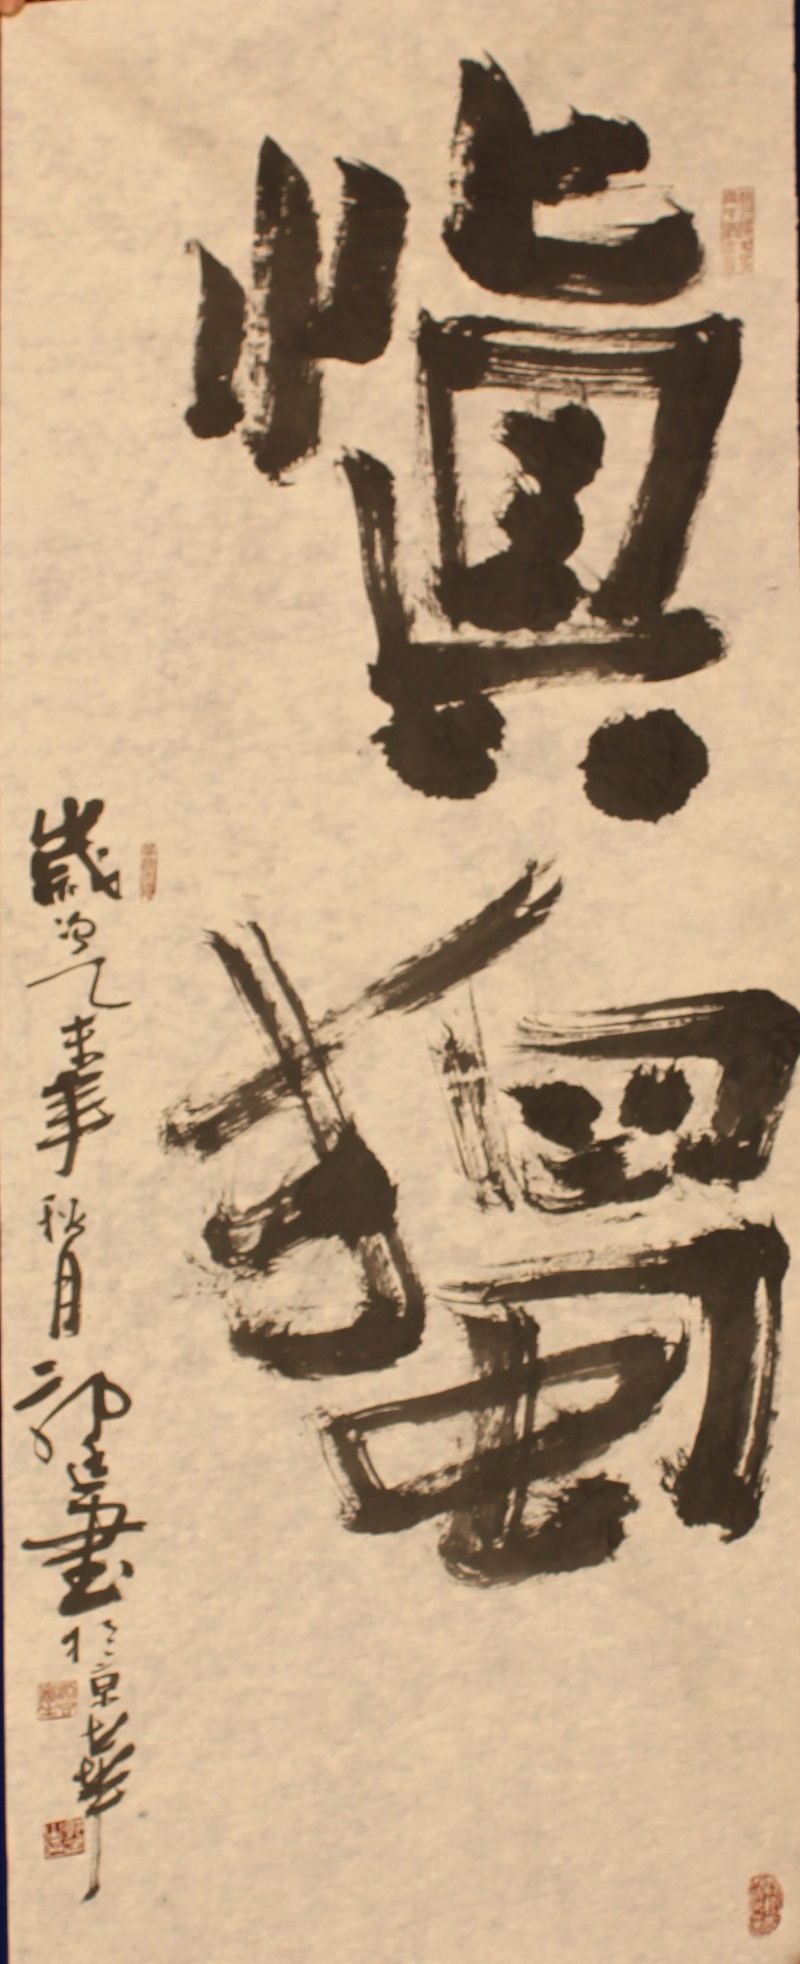 慎獨
歲次乙未年秋月
書於京華